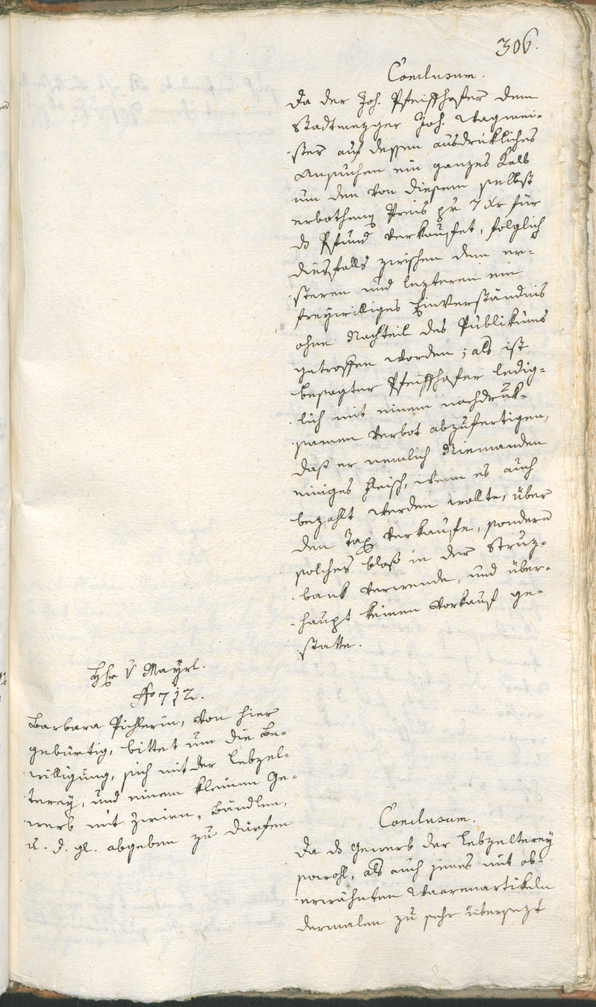 306.
Conclusum.
Da der Joh. Pfeiffhofer dem
Stadtmezger Joh. Wagmei-
ster auf dessen ausdrükliches
Ansuchen ein ganzes Kalb
um den von diesem selbst
erbothenen Preis zu 7 Xr für
ds Pfund verkaufet, folglich
diesfalls zwischen dem er-
steren und lezteren ein
freywilliges Einverständnis
ohne Nachteil des Publikums
getroffen worden; als ist
besagter Pfeiffhofer ledig-
lich mit einem nachdruk-
samen Verbot abzufertigen,
daß er nemlich Niemanden
einiges Fleisch, wenn es auch
bezahlt werden wollte, über
den Tax verkaufe, sondern
solches bloß in der
bank verwende, und über-
haupt keinen Vorkauf ge-
statte.
Hr v Mayrl.
No 712.
Barbara Pichlerin, von hier
gebürtig, bittet um die Be-
willigung, sich mit der Lebzel-
terey, und einem kleinen Ge-
werb mit Zwirn, Bändlen,
u. d. gl. abgeben zu dürfen
Conclusum.
Da ds Gewerb der Lebzelterey
sowohl, als auch jenes mit ob-
erwähnten Waarenartikeln
dermalen zu sehr übersezt